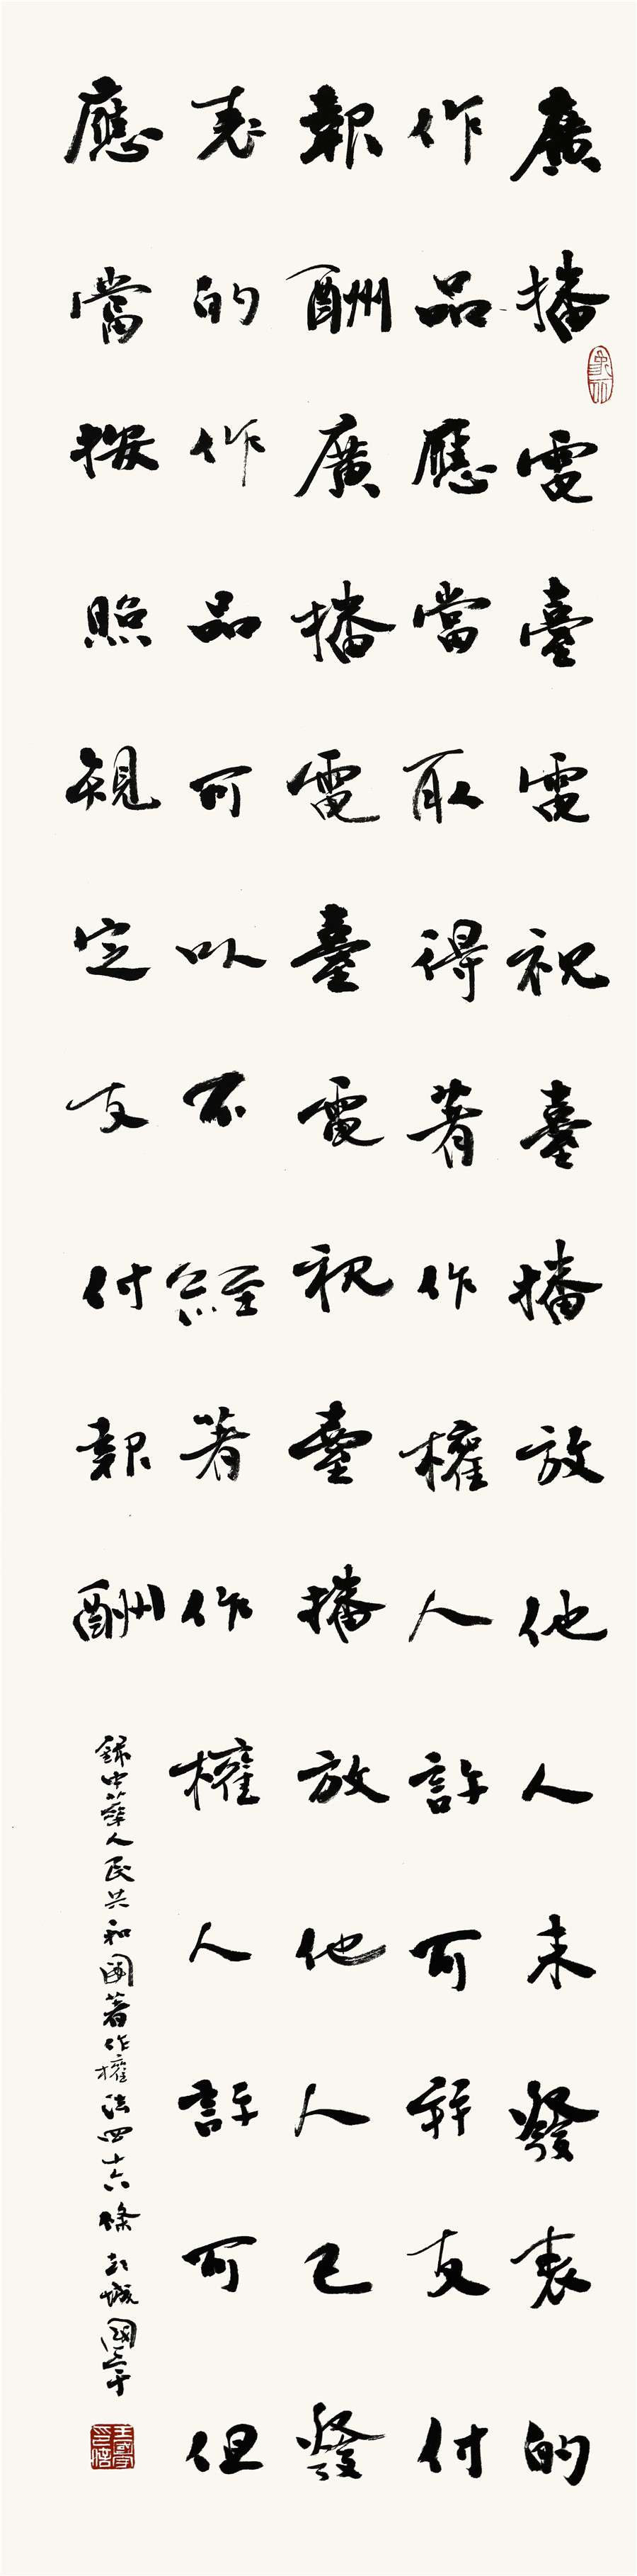 廣播電臺電視臺播放他人未發表的
作品應當取得著作權人許可並支付
報酬廣播電臺電視臺播放他人已發
表的作品可以不經著作權人許可但
應當按照規定支付報酬
錄中華人民共和國著作權法四十六條 彭城國三于